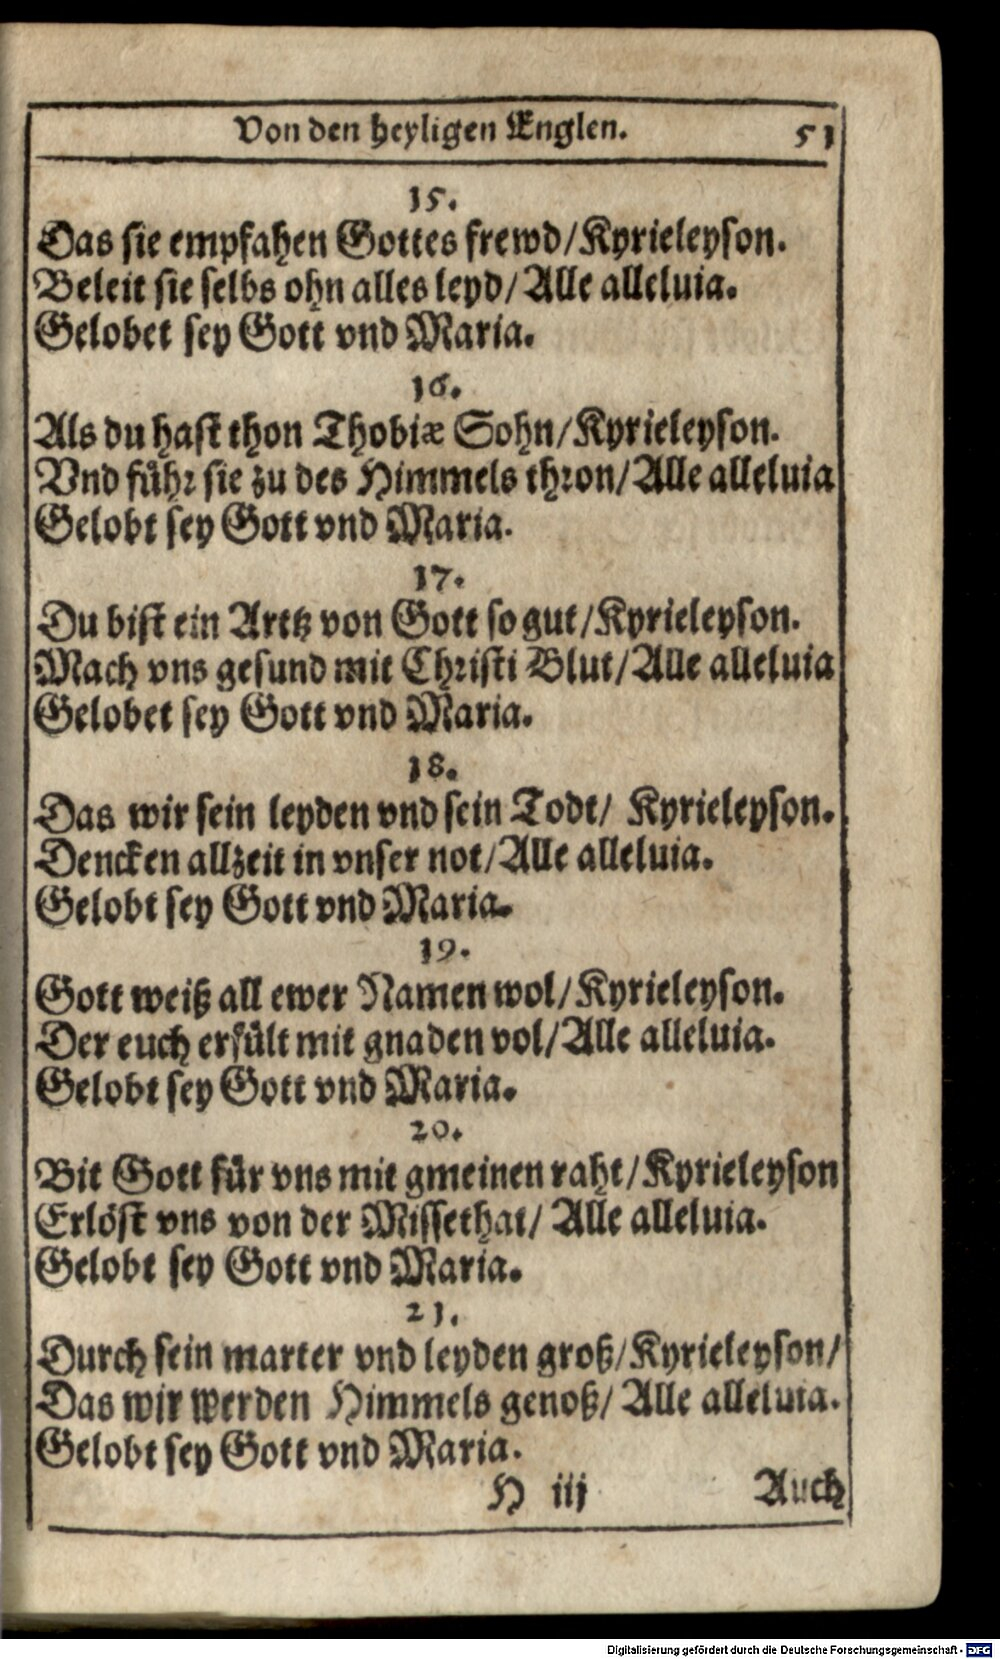 Von den heyligen Englen. 51
15.
Das sie empfahen Gottes frewd/Kyrieleyson.
Beleit sie selbs ohn alles leyd/Alle alleluia.
Gelobet sey Gott vnd Maria.
16.
Als du hast thon Thobiæ Sohn/Kyrieleyson.
Vnd führ sie zu des Himmels thron/Alle alleluia
Gelobt sey Gott vnd Maria.
17.
Du bist ein Artz von Gott so gut/Kyrieleyson.
Mach vns gesund mit Christi Blut/Alle alleluia
Gelobet sey Gott vnd Maria.
18.
Das wir sein leyden vnd sein Todt/ Kyrieleyson.
Dencken allzeit in vnser not/Alle alleluia.
Gelobt sey Gott vnd Maria.
19.
Gott weiß all ewer Namen wol/Kyrieleyson.
Der euch erfült mit gnaden vol/Alle alleluia.
Gelobt sey Gott vnd Maria.
20.
Bit Gott für vns mit gmeinen raht/Kyrieleyson
Erlöst vns von der Missethat/ Alle alleluia.
Gelobt sey Gott vnd Maria.
21.
Durch sein marter vnd leyden groß/Kyrieleyson/
Das wir werden Himmels genoß/ Alle alleluia.
Gelobt sey Gott vnd Maria.
H iij Auch
Digitalisierung gefördert durch die Deutsche Forschungsgemeinschaft - DFG